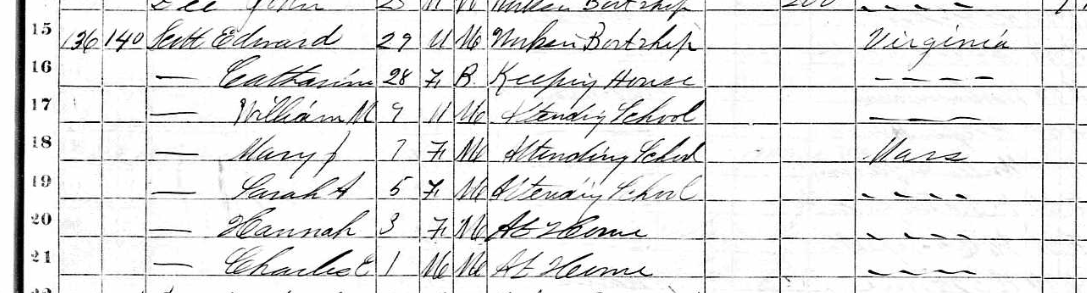 Lee John 25 M M Works in Boot shop 200 – – – –
15 136 140 Scott Edward 29 M M Works in Boot shop Virginia
16 — Catharine 28 F B Keeping House – – – –
17 — William M 9 M M Attending School – – – –
18 — Mary J 7 F M Attending School Mass
19 — Sarah A 5 F M Attending School – – – –
20 — Hannah 3 F M At Home – – – –
21 — Charles E 1 M M At Home – – – –